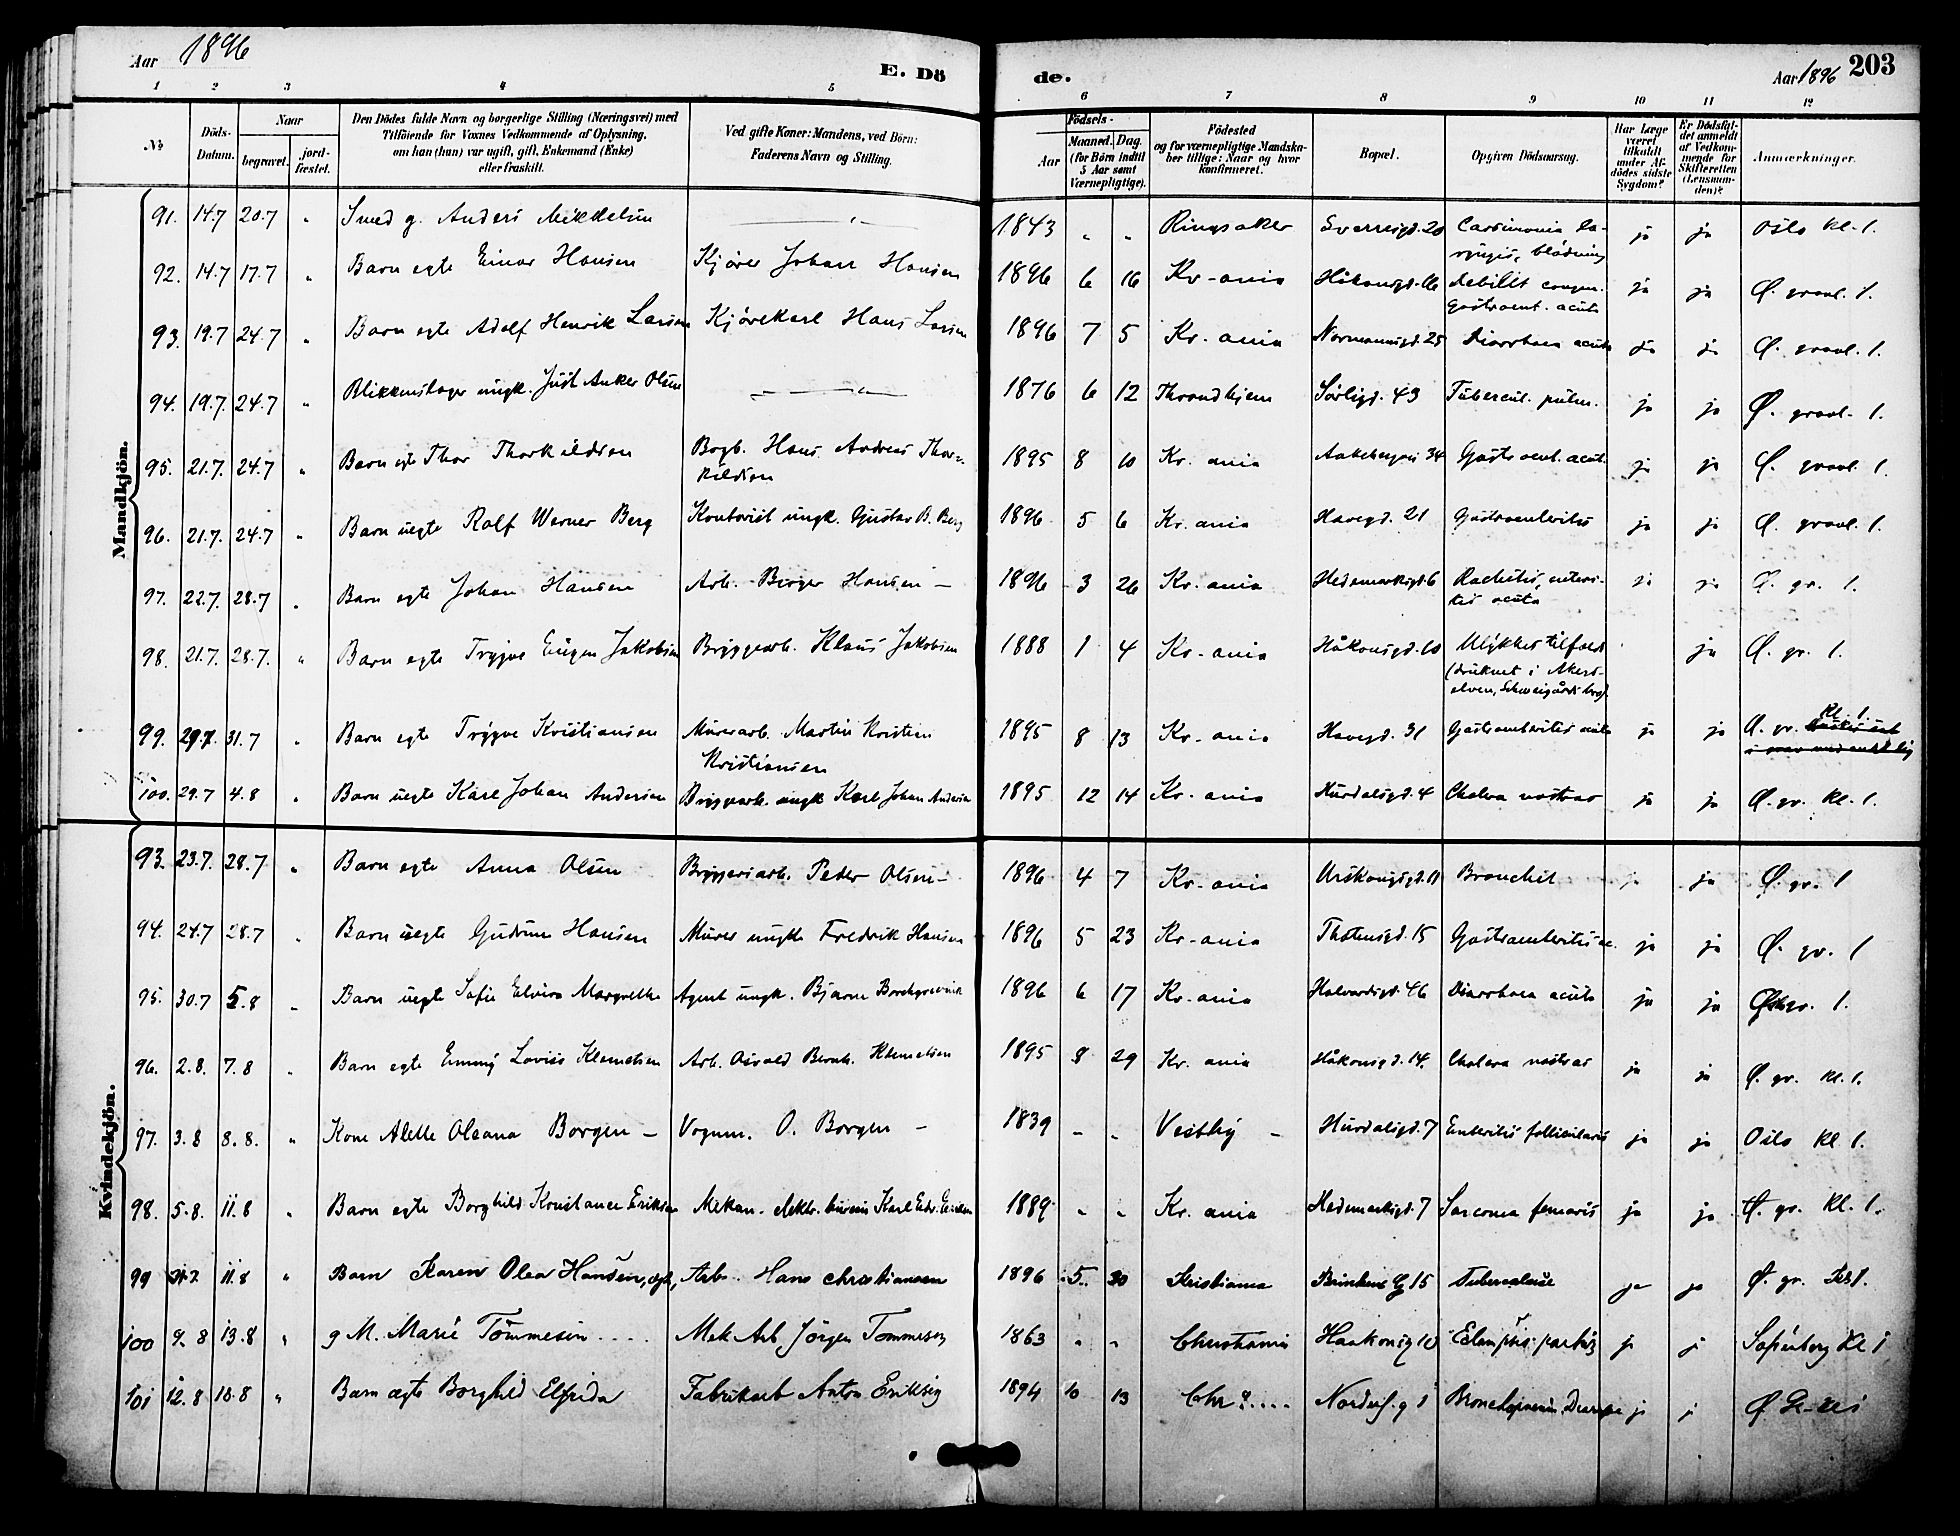 Aar 1896
E. Dö
de.
Aar 1896 203
1 2 3 4 5 6 7 8 9 10 11 12
№
Döds-Datum.
Naar
begravet.
jord-fæstet.
Den Dödes fulde Navn og borgerlige Stilling (Næringsvei) med
Tilföiende for Voxnes Vedkommende af Oplysning,
om han (hun) var ugift, gift, Enkemand (Enke)
eller fraskilt.
Ved gifte Koner: Mandens, ved Börn:
Faderens Navn og Stilling.
Födsels-
Aar
Maaned. Dag.
(for Börn indtil
5 Aar samt
Værnepligtige).
Födested
og for værnepligtige Mandska-
ber tillige: Naar og hvor
konfirmeret.
Bopæl.
Opgiven Dödsaarsag.
Har Læge
været
tilkaldt
under Af-
dödes sidste
Sygdom?
Er Dödsfal-
det anmeldt
af Vedkom-
mende for
Skifteretten
(Lensman-
den)?
Anmærkninger.
Mandkjön.
91. 14.7 20.7 " Smed g. Anders Mikkelsen — " — 1843 " " Ringsaker Sverresgd. 20 ja ja Oslo kl. 1.
92. 14.7 17.7 " Barn egte Einar Hansen Kjörer Johan Hansen 1896 6 16 Kr-ania Håkonsgd. Debilit congen.
Gastroent. acuta ja ja Ø. gravl. 1.
93. 19.7 24.7 " Barn egte Adolf Henrik Larsen Kjörekarl Hans Larsen 1896 7 5 Kr. ania Normannsgd. 25 Diarrhoea acuta ja ja Ø. gravl. 1.
94. 19.7. 24.7 " Blikkenslager ungk. Just Anker Olsen — " — 1876 6 12 Throndhjem Sörligd. 43 Tubercul. pulm. ja ja Ø. gravl. 1.
95. 21.7. 24.7 " Barn egte Thor Thorkildsen Bogb. Hans Andreas Thor-
kildsen 1895 8 10 Kr. ania Aakebergvei 34 Gastroent. acut. ja ja Ø. gravl. 1.
96. 21.7. 24.7 " Barn uegte Rolf Werner Berg Kontorist ungk. Gustav B. Berg 1896 5 6 Kr. ania Havegd. 21 Gastroenteritis ja ja Ø. gravl. 1.
97. 22.7. 28.7 " Barn egte Johan Hansen Arb. Birger Hansen — 1896 3 26 Kr. ania Hedemarksgd. 6 Rachitis, enteri-
tis acuta ja ja Ø. gr. 1.
98. 21.7. 28.7. " Barn egte Trygve Eugen Jakobsen Bryggearb. Klaus Jakobsen 1888 1 4 Kr-ania Håkonsgd. 10 Ulykkestilfælde
(druknet i Akers-
elven, Schweigårds bro). ja Ø. gr. 1.
99. 29.7. 31.7 " Barn egte Trygve Kristiansen Murerarb. Martin Kristian
Kristiansen 1895 8 13 Kr-ania Havegd. 31 Gastroenteritis acuta ja ja Ø. gr. kl. 1.
100. 29.7 4.8 " Barn uegte Karl Johan Andersen Bryggearb. ungk Karl Johan Andersen 1895 12 14 Kr-ania Hurdalsgd. 4 Cholera nostras ja ja Ø. gr. kl. 1.
Kvindekjön.
93. 23.7. 28.7 " Barn egte Anna Olsen Bryggeriarb. Peder Olsen — 1896 4 7 Kr-ania Urskougsgd. 11 Bronchit ja ja Ø. gr. 1
94. 24.7 28.7 " Barn uegte Gudrun Hansen Murer ungk Fredrik Hansen 1896 5 23 Kr-ania Thotensgd. 15 Gastroenteritis ac. ja ja Ø. gr. 1
95. 30.7 5.8 " Barn uegte Sofie Elvira Margrethe Agent ungk. Bjarne Borchgrevink 1896 6 17 Kr-ania Halvardsgd. 46 Diarrhoea acuta ja ja Østgr. 1.
96. 2.8. 7.8 " Barn egte Emmy Lovise Klemetsen Arb. Osvald Bernh. Klemetsen 1895 8 29 Kr. ania Håkonsgd. 14. Cholera nostras ja ja Ø. gr. kl. 1.
97. 3.8 8.8. " Kone Alette Oleana Borgen — Vognm. O. Borgen — 1839 — " Vestby — Hurdalsgd. 7 Enteritis follicularis ja ja Oslo kl 1.
98. 5.8. 11.8 " Barn egte Borghild Konstance Eriksen Mekan. Karl Edv. Eriksen 1889 " " Kr. ania Hedemarksgd. 7 Sarcoma femoris ja ja Ø. gr. kl. 1.
99 31.7 11.8 " Barn Karen Olea Hansen, egte, Arb. Hans Christiansen 1896 5 30 Kristiania 15 Tuberculose ja ja Ø. gr. Kl 1.
100 9.8 13.8 " g M. Marie Tömmesen .... Mek Arb Jörgen Tommesen 1863 " " Christiania Haakonsg 10 ja j Sofienberg Kl 1
101 12.8 18.8 " Barn ægte Borghild Elfrida Fabrikarb Anton 1894 10 13 Chr? .... ja j